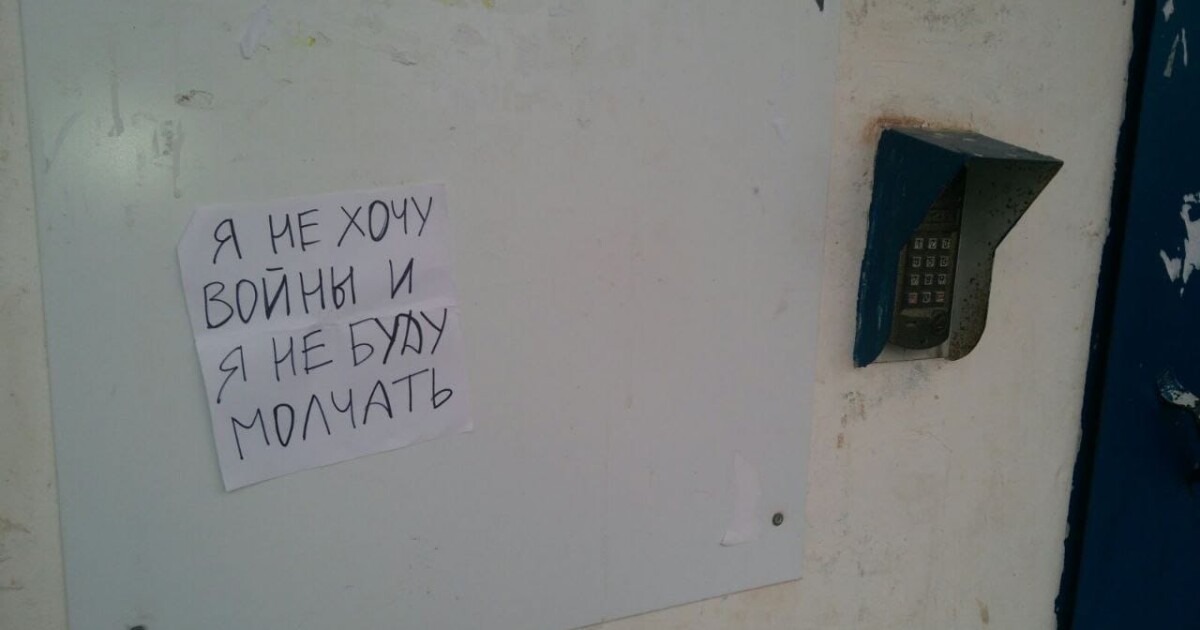 Я НЕ ХОЧУ
ВОЙНЫ И
Я НЕ БУДУ
МОЛЧАТЬ